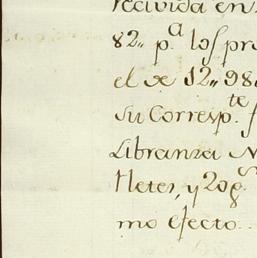 recivida en
82„ p.ª los pro
el de 12„ 98
su Corresp.te
Libranza N
fletes, y 20 g.s
mo efecto..